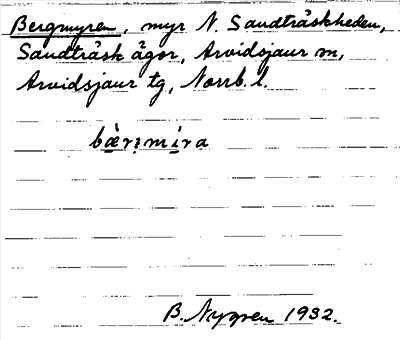 Bergmyren, myr N. Sandträskheden,
Sandträsk ägor, Arvidsjaur m,
Arvidsjaur tg, Norrb. l.
bæ̀rịmíra
B. Nygren 1932.